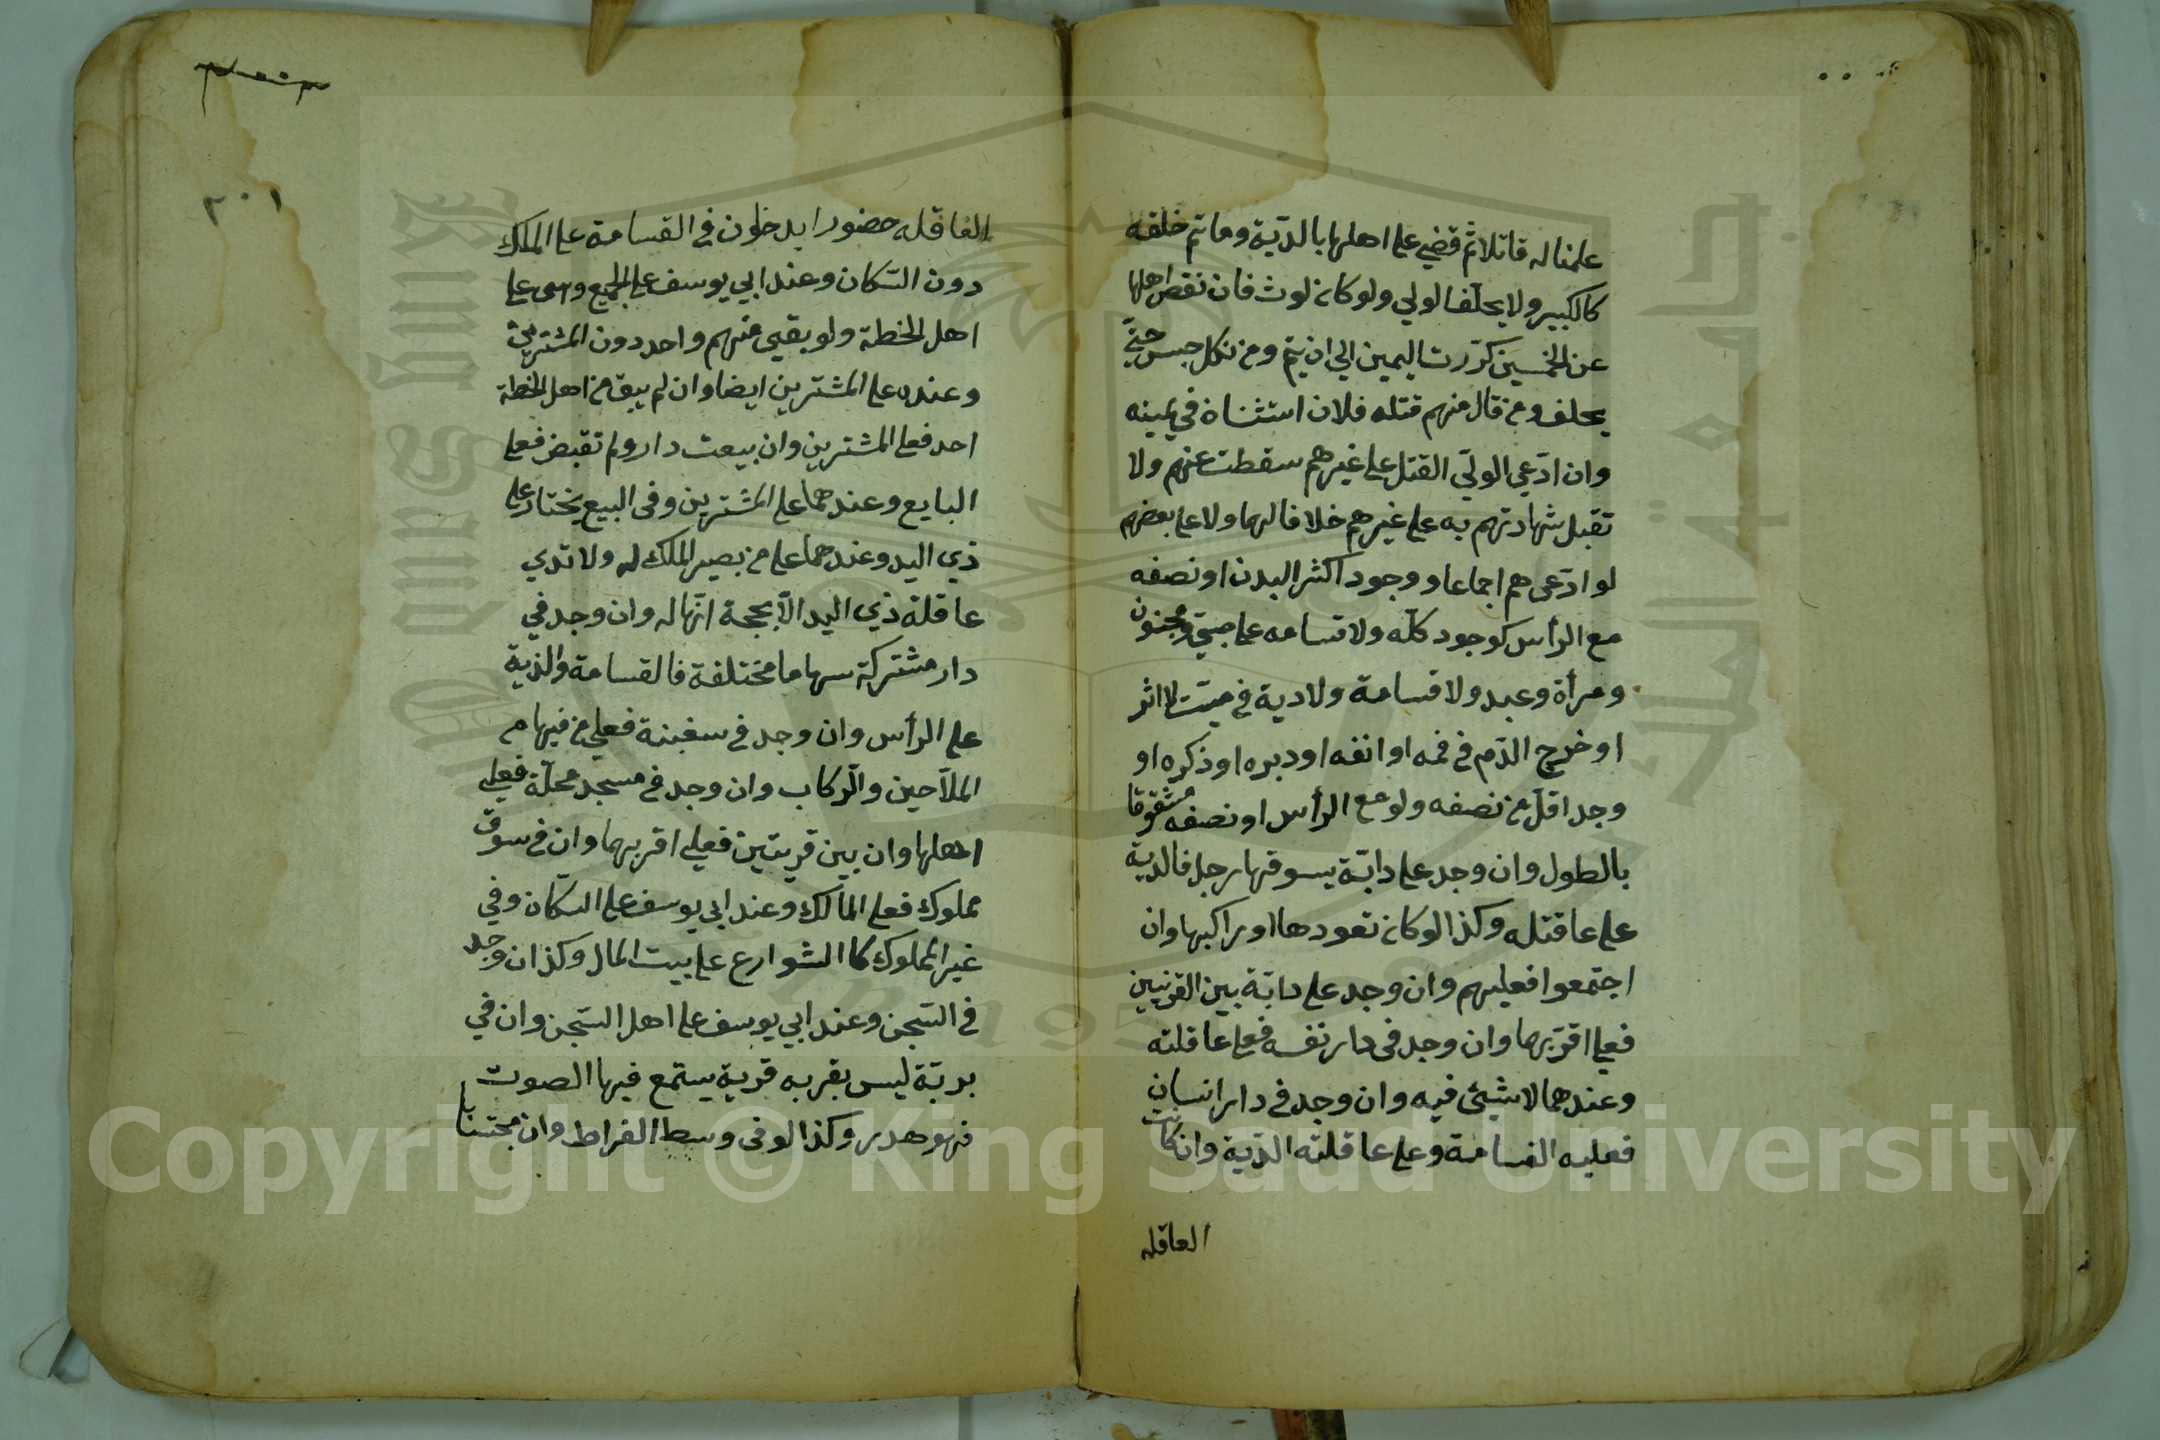 علمنا له قاتلا ثم قضي على اهلها بالدّية وما تم خلقه
كالكبير ولا يحلف الولي ولو كان لوث فان نقص اهلها
عن الخمسين كرّرت اليمين الي ان يتم ومن نكل حبس حتّي
يحلف ومن قال منهم قتله فلان استثناة في يمينه
وان ادّعي الوليّ القتل على غيرهم سقطت عنهم ولا
تقبل شهادتهم به على غيرهم خلافا لهما ولا على بعضهم
لو ادّعى هم اجماعا ووجود اكثر البدن او نصفه
مع الرأس كوجود كلّه ولا قسامه على صبيّ ومجنون
ومرأة وعبد ولا قسامة ولا دية في ميّت لا اثر
او خرج الدّم في فمه او انفه او دبره او ذكره او
وجد اقلّ من نصفه ولو مع الرأس او نصفه مشقوقا
بالطول وان وجد على دابّة يسوقها رجل فالدية
على عاقتله وكذا لو كان تعودها او راكبها وان
اجتمعوا فعليهم وان وجد على دابّة بين القريتين
فعلى اقرّبهما وان وجد فى دار نفسه فعلى عاقلته
وعندهما لا شيئ فيه وان وجد في دار انسان
فعليه القسامة وعلى عاقلته الدّية وان كانت
العاقله
٢٠١
العاقله حضورا يدخلون في القسامة على الملاك
دون السّكان وعند ابي يوسف على الجميع وهى على
اهل الخطة ولو بقيى منهم واحد دون المشتريين
وعنده على المشترين ايضا وان لم يبق من اهل الخطة
احد فعلى المشترين وان بيعت دار ولم تقبض فعلى
البايع وعندهما على المشترين وفى البيع بختار على
ذي اليد وعندهما على من يصير الملك له ولا تدي
عاقلة ذي اليد الّا بحجة انّها له وان وجد في
دار مشتركة سهاما مختلفة فالقسامة والدّية
على الرأس وان وجد في سفينة فعلي من فيها من
الملّاحين والرّكاب وان وجد في مسجد محلّة فعلى
اهلها وان بين قريتين فعلى اقربهما وان في سوق
مملوك فعلى المالك وعند ابي يوسف على السكّان وفي
غير المملوك كا الشوارع على بيت المال وكذ ان وجد
في السّجن وعند ابي يوسف على اهل السّجن وان في
بريّة ليس بقربه قرية يستمع فيها الصوت
فهو هدر وكذا لو فى وسط الفراط وان محتبسا
Copyright © King Saud University